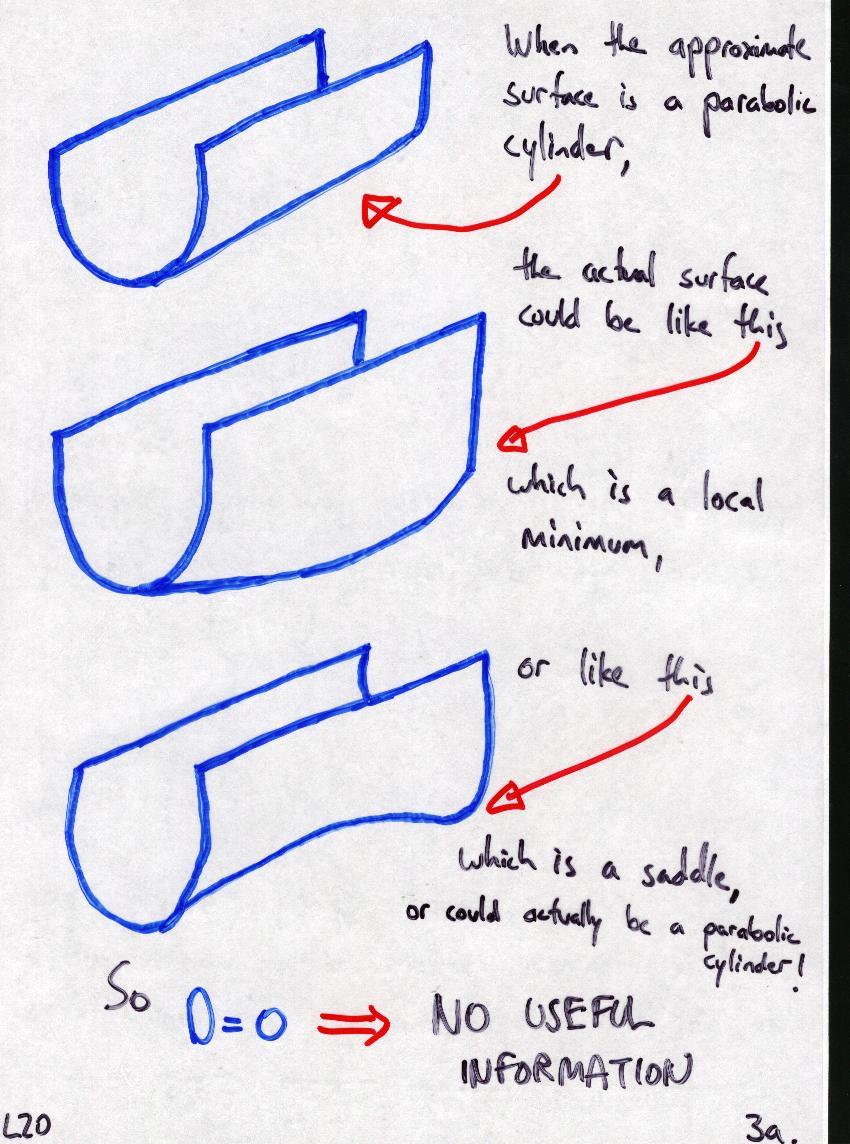 When the approximate
surface is a parabolic
cylinder,
the actual surface
could be like this
which is a local
minimum,
or like this
which is a saddle,
or could actually be a parabolic
cylinder!
So D=0 ⇒ NO USEFUL
INFORMATION
L20
3a.